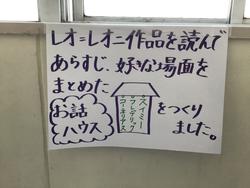 レオ=レオニ作品を読んで
あらすじ、好きな場面を
まとめた
お話
ハウス
スイミー
フレデリック
コーネリアス
をつくり
ました。